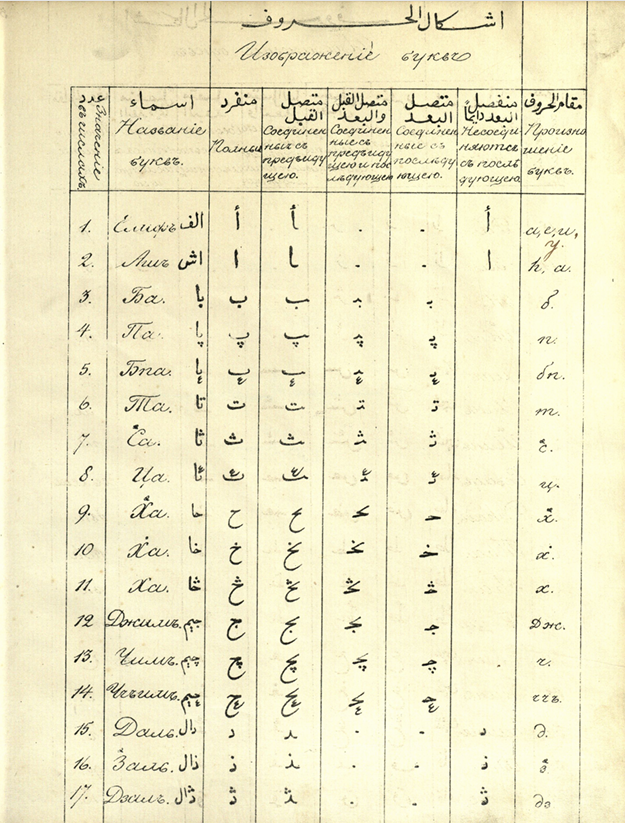 اشكال الحروف
Изображенiе буквъ
عدد Значенiе въ числахъ | اسماء Названiе буквъ. | منفرد Полный | متصل القبل Соединен ный съ предъиду щею. | متصل القبل والبعد Соединен ные съ предъиду щею и пос лѣдующею | متصل البعد Соединен ные съ послѣду ющею. | منفصل البعد دايما Несоеди няются съ послѣ дующею | مقام الحروف Произно шенiе буквъ.
1. Елифъ الف أ ـأ . . أ а, е, и, у.
2. Ашъ اش ا ـا . . ا һ, а.
3. Ба. با ب ـب ـبـ بـ б.
4. Па. پا پ ـپ ـپـ پـ п.
5. Бпа. бп.
6. Та. تا ت ـت ـتـ تـ т.
7. Са. ثا ث ـث ـثـ ثـ с.
8. Ца. ц.
9. Ха. حا ح ـح ـحـ حـ х.
10 Ха. خا خ ـخ ـخـ خـ х.
11. Ха. х.
12 Джимъ. جيم ج ـج ـجـ جـ дж.
13. Чимъ. چيم چ ـچ ـچـ چـ ч.
14. Чъимъ. ччъ.
15. Далъ. دال د ـد . . د д.
16. Залъ. ذال ذ ـذ . . ذ з
17. Дзалъ. ڎال ڎ ـڎ . ڎ дз